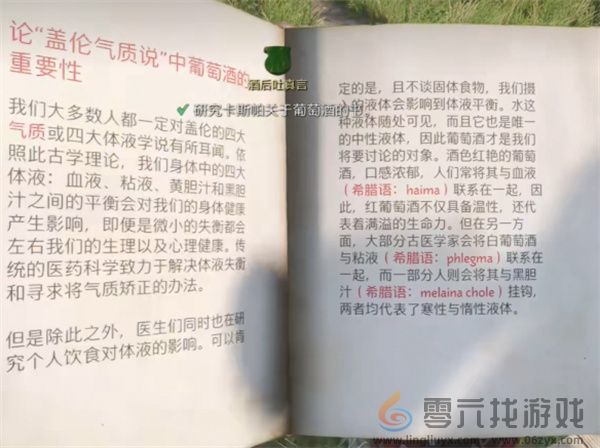 论“盖伦气质说”中葡萄酒的
重要性
我们大多数人都一定对盖伦的四大
气质或四大体液学说有所耳闻。依
照此古学理论，我们身体中的四大
体液：血液、粘液、黄胆汁和黑胆
汁之间的平衡会对我们的身体健康
产生影响，即便是微小的失衡都会
左右我们的生理以及心理健康。传
统的医药科学致力于解决体液失衡
和寻求将气质矫正的办法。
但是除此之外，医生们同时也在研
究个人饮食对体液的影响。可以肯
酒后吐真言
✔ 研究卡斯帕关于葡萄酒的书。
定的是，且不谈固体食物，我们摄
入的液体会影响到体液平衡。水这
种液体随处可见，而且它也是唯一
的中性液体，因此葡萄酒才是我们
将要讨论的对象。酒色红艳的葡萄
酒，口感浓郁，人们常将其与血液
（希腊语：haima）联系在一起，因
此，红葡萄酒不仅具备温性，还代
表着满溢的生命力。但在另一方
面，大部分古医学家会将白葡萄酒
与粘液（希腊语：phlegma）联系在
一起，而一部分人则会将其与黑胆
汁（希腊语：melaina chole）挂钩，
两者均代表了寒性与惰性液体。
零元找游戏
www.lingliuyx.com|www.06zyx.com